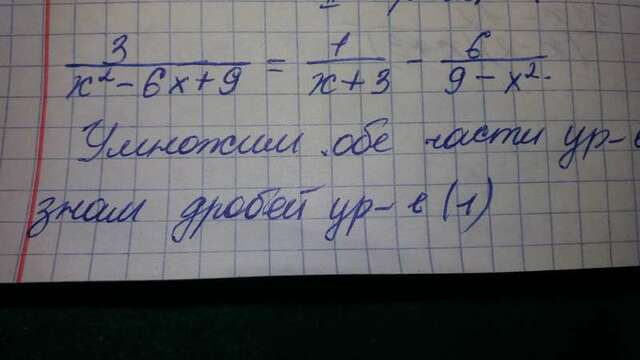 3/(x² - 6x + 9) = 1/(x + 3) - 6/(9 - x²).
Умножим обе части ур-
знам дробей ур-е (1)